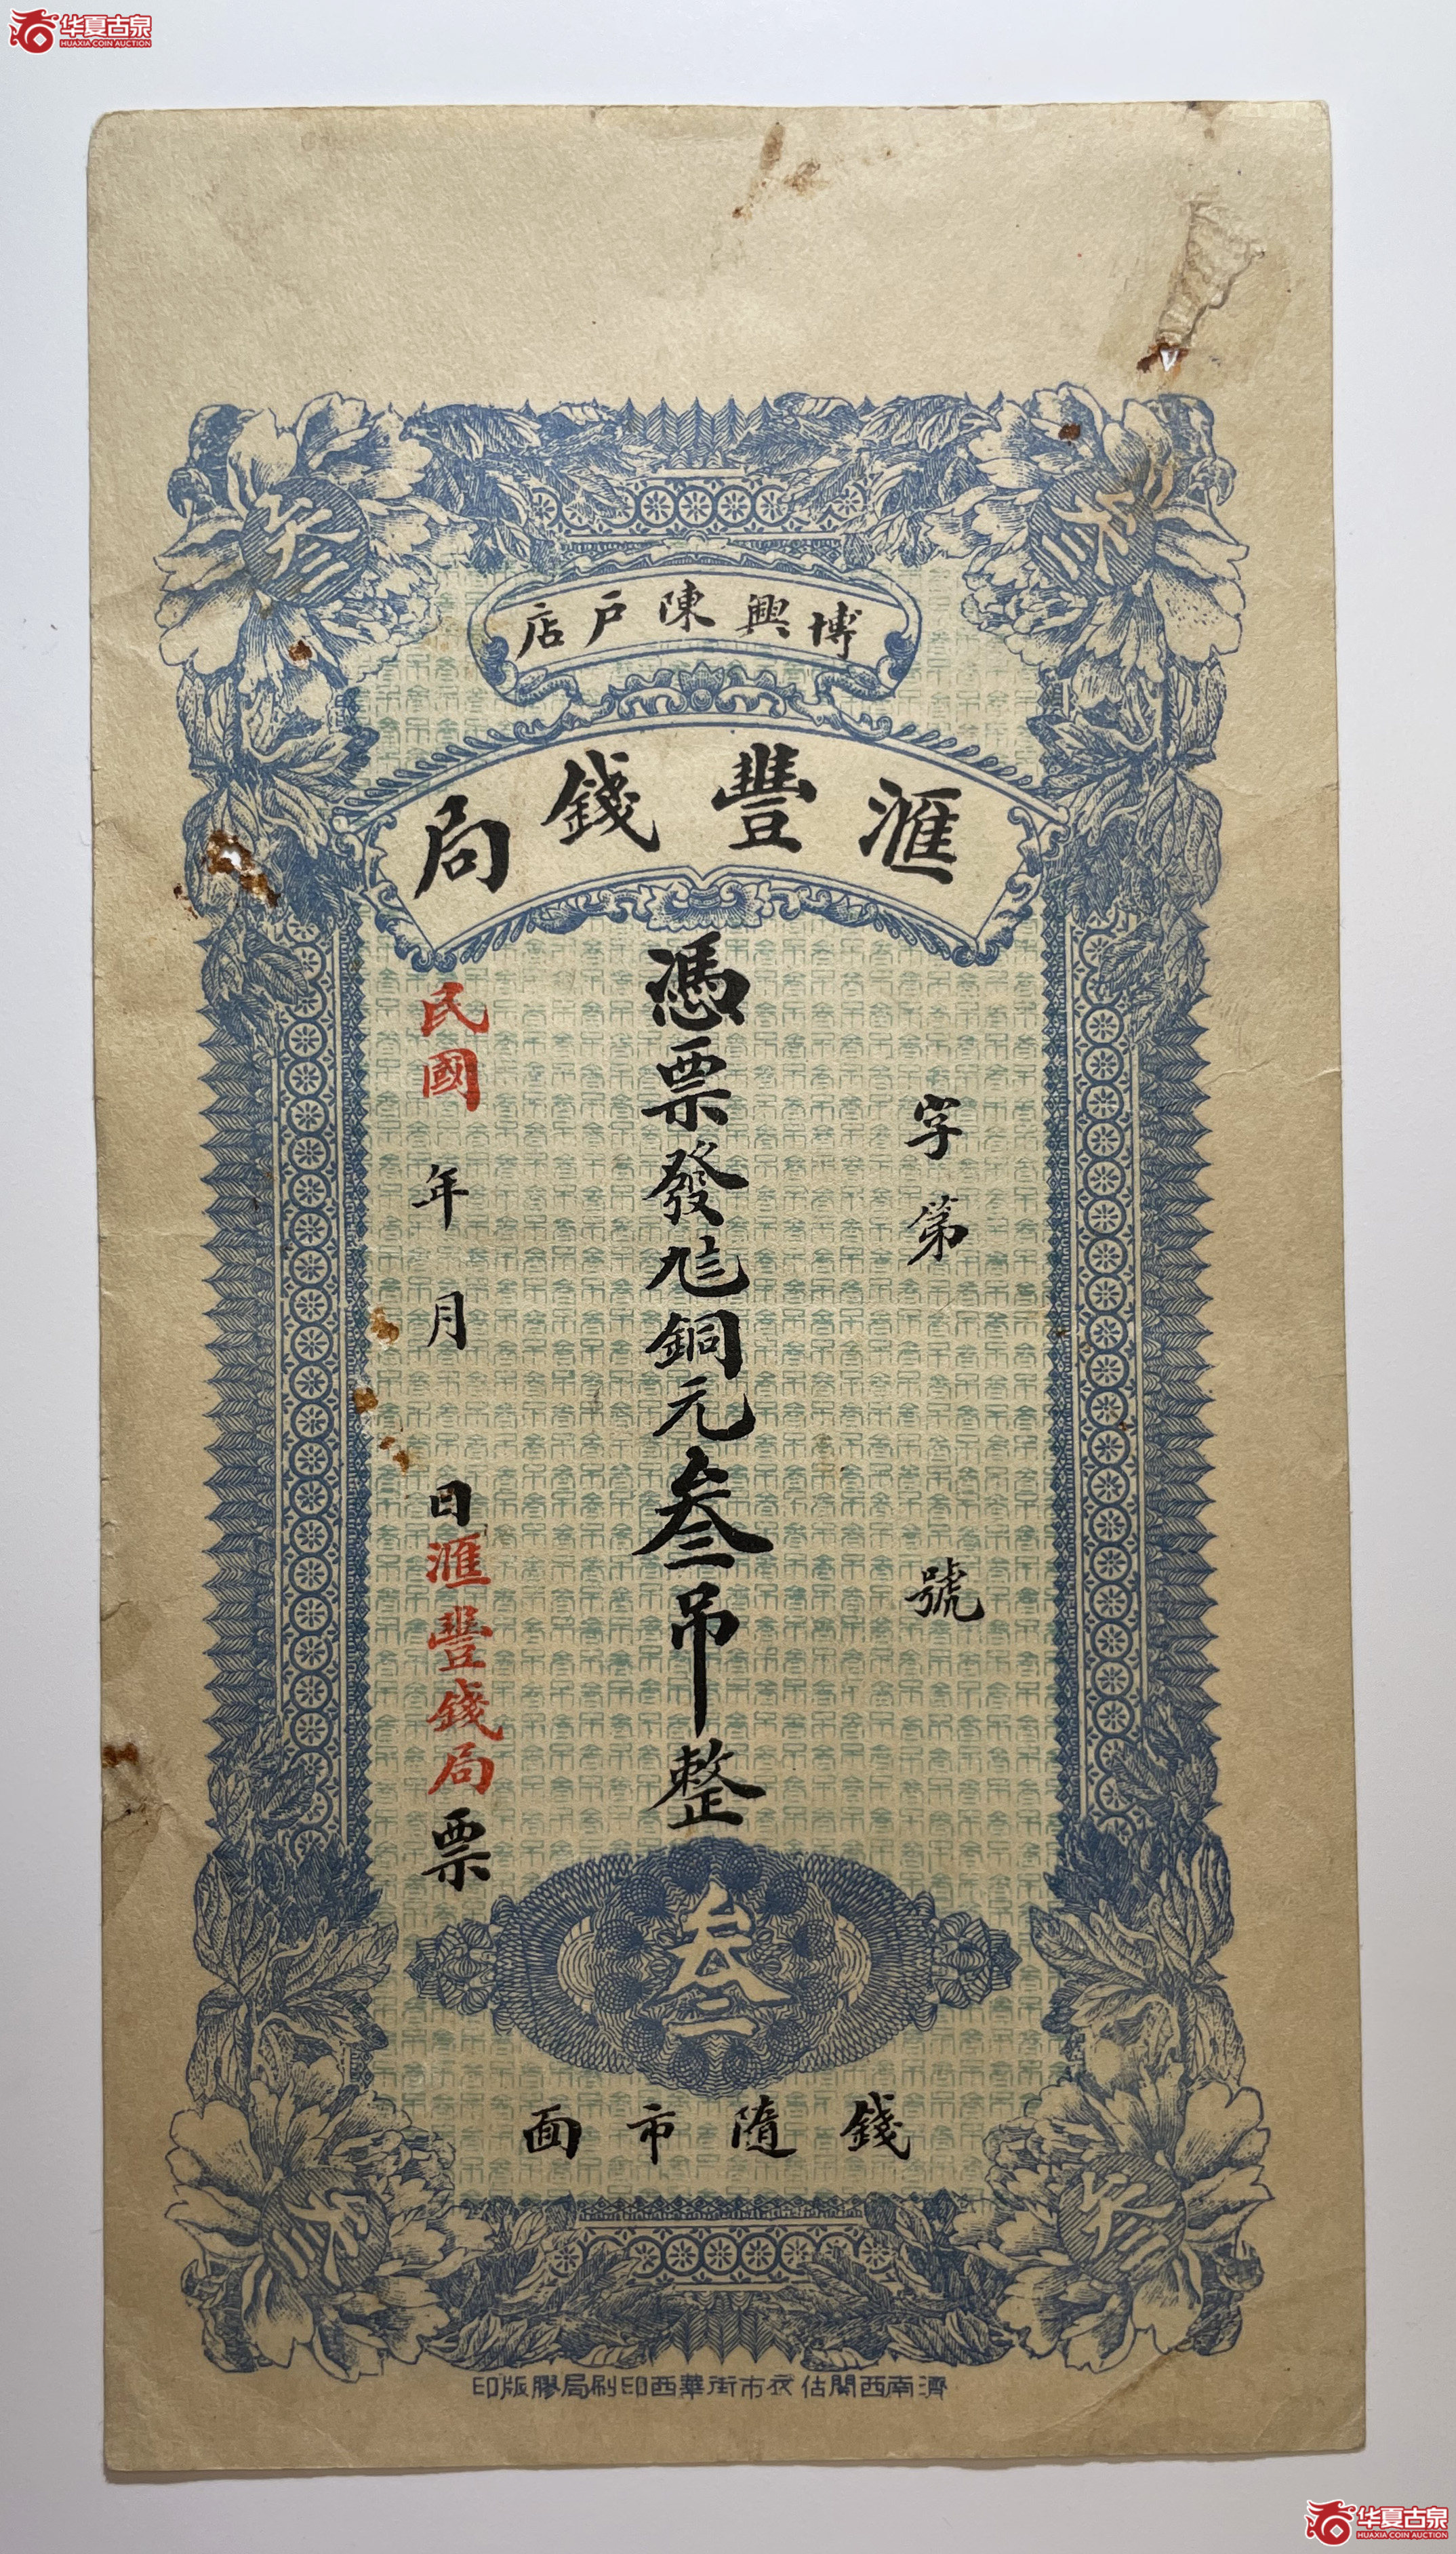 华夏古泉
HUAXIA COIN AUCTION
叁
叁
博興陳戶店
滙豐錢局
字第 號
憑票發 銅元叁吊整
民國 年 月 日滙豐錢局票
叁
錢隨市面
叁
叁
濟南西關估衣市街華西印刷局膠版印
华夏古泉
HUAXIA COIN AUCTION